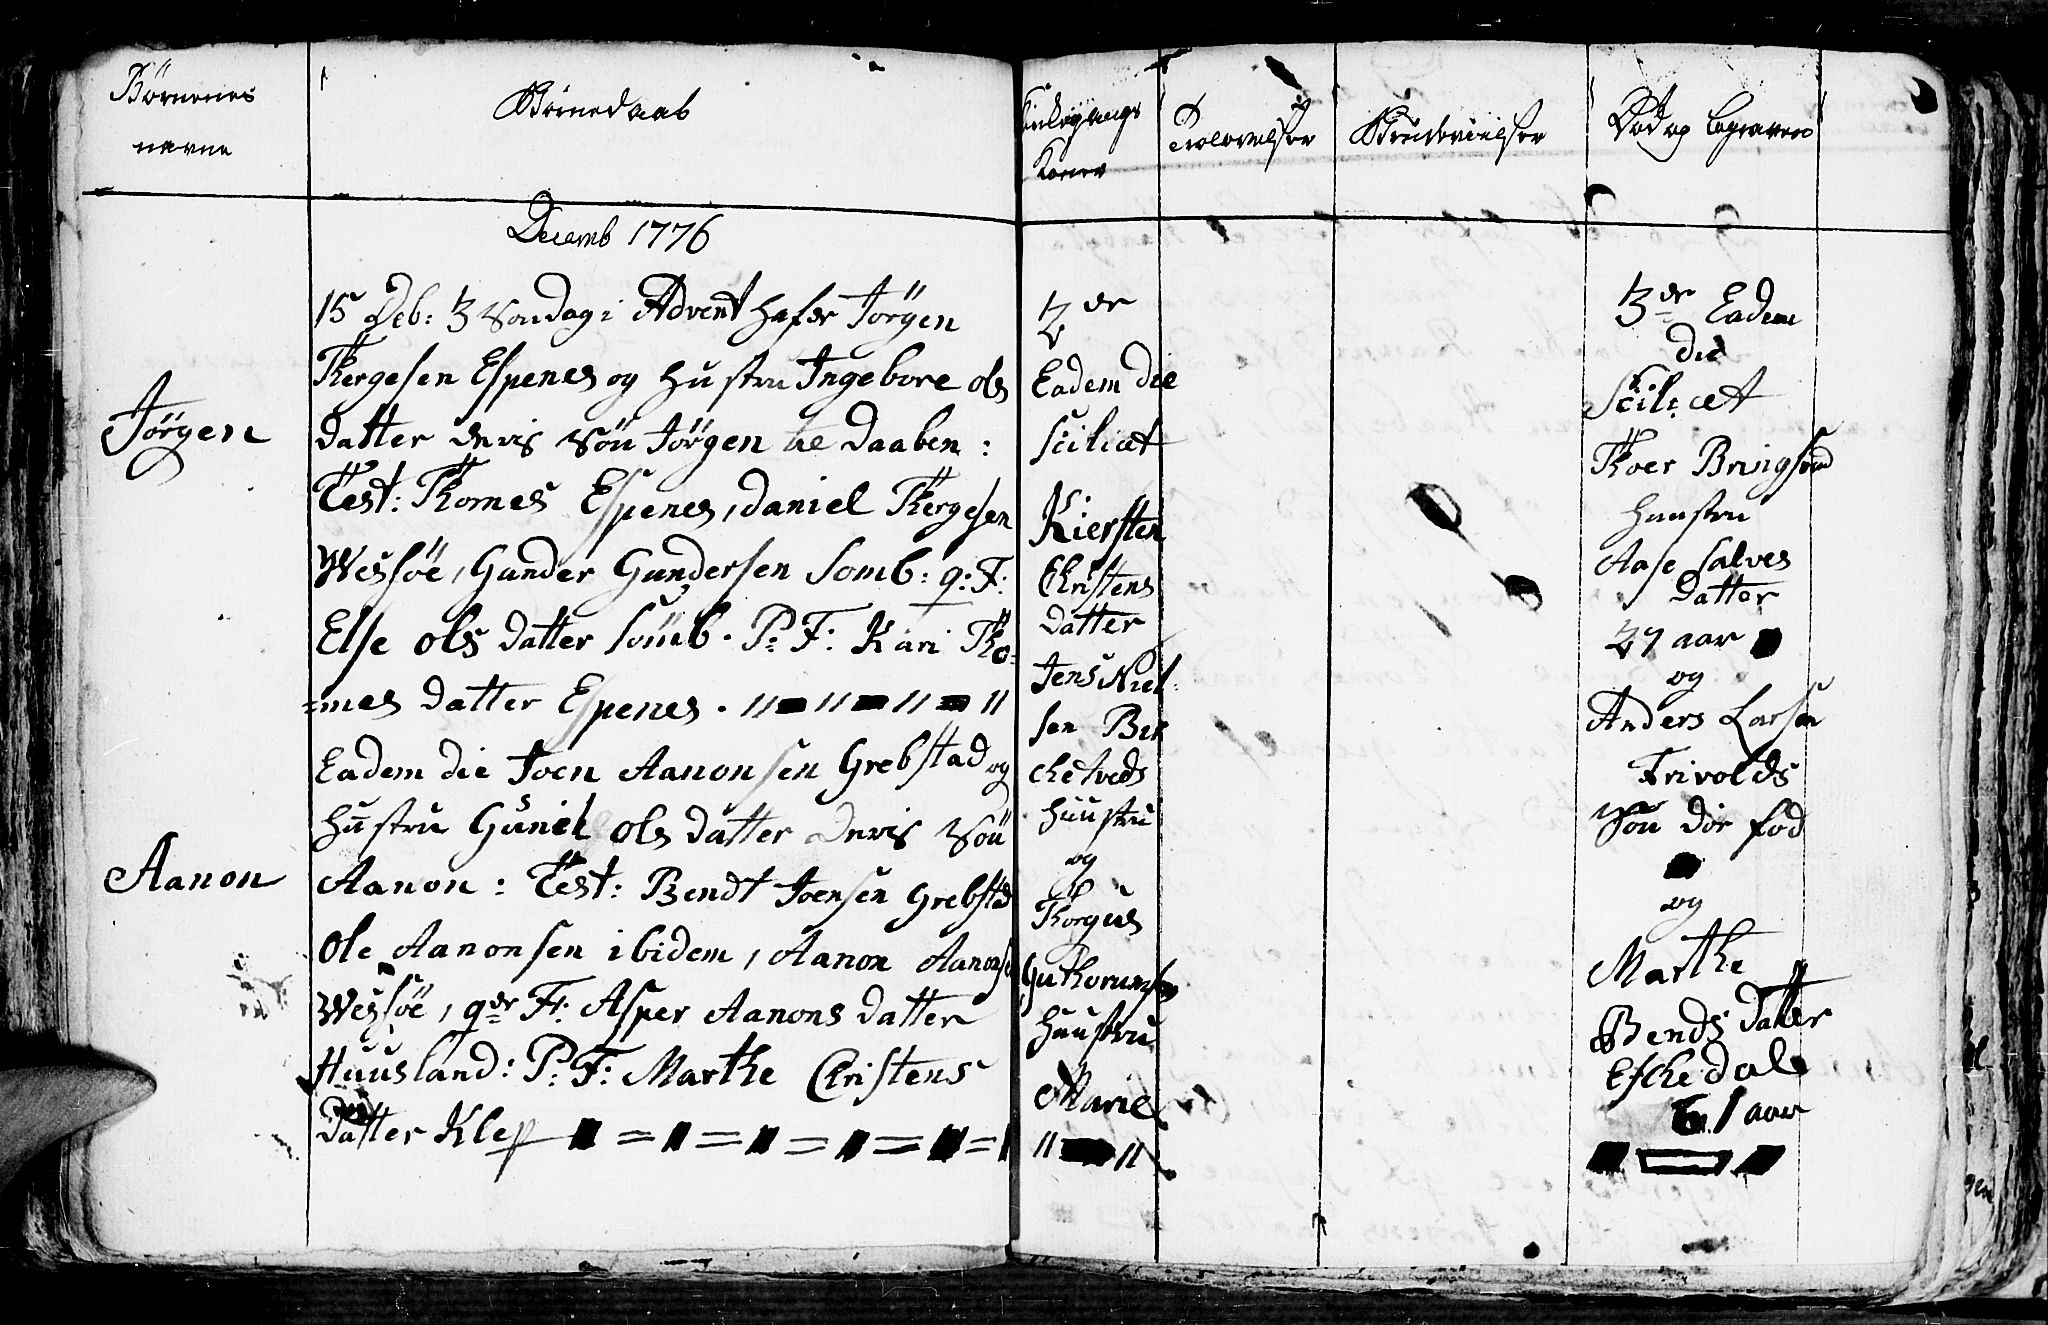 Børnenes
navne
Børnedaab
Decemb 1776
15 Deb: 3 Søndag i Advent hafer Jörgen
Tergesen Espenes og Hustru Ingebore ols
Jörgen
datter deris Sön Jörgen te Daaben:
Test: Thomes Espenes, Daniel Tergesen
Wessöe, Gunder Gundersen Somb: q: F:
Else ols datter Sömb. P: F: Kari Tho-
=mes datter Espenes.
Eadem die Joen Aanonsen Grebstad og
Hustru Guniel ols datter Deris Sön
Aanon
Aanon: Test: Bendt Joensen Grebstad
Ole Aanonsen ibidem, Aanon Aanonse
Wessöe, qer F: Asper Aanons datter
Huusland: P: F: Marthe Christens
Datter Klep
Indegangs
Koner
2 er
Eadem Die
scilicet
Kiersten
Christens
datter
Jens Niel
sen Bir
chetveds
Huustru
og
Torgius
Guthorumsen
Huustru
Marie
Trolovelser
Brudevielser
Död og begraven
3 er Eadem
die
Scilicet
Thoer Bringsvord
Huustru
Aase Salves
Datter
27 aar
og
Anders Larsen
Frivolds
Sön dör fod
og
Marthe
Bends Datter
Eschedale
61 aar